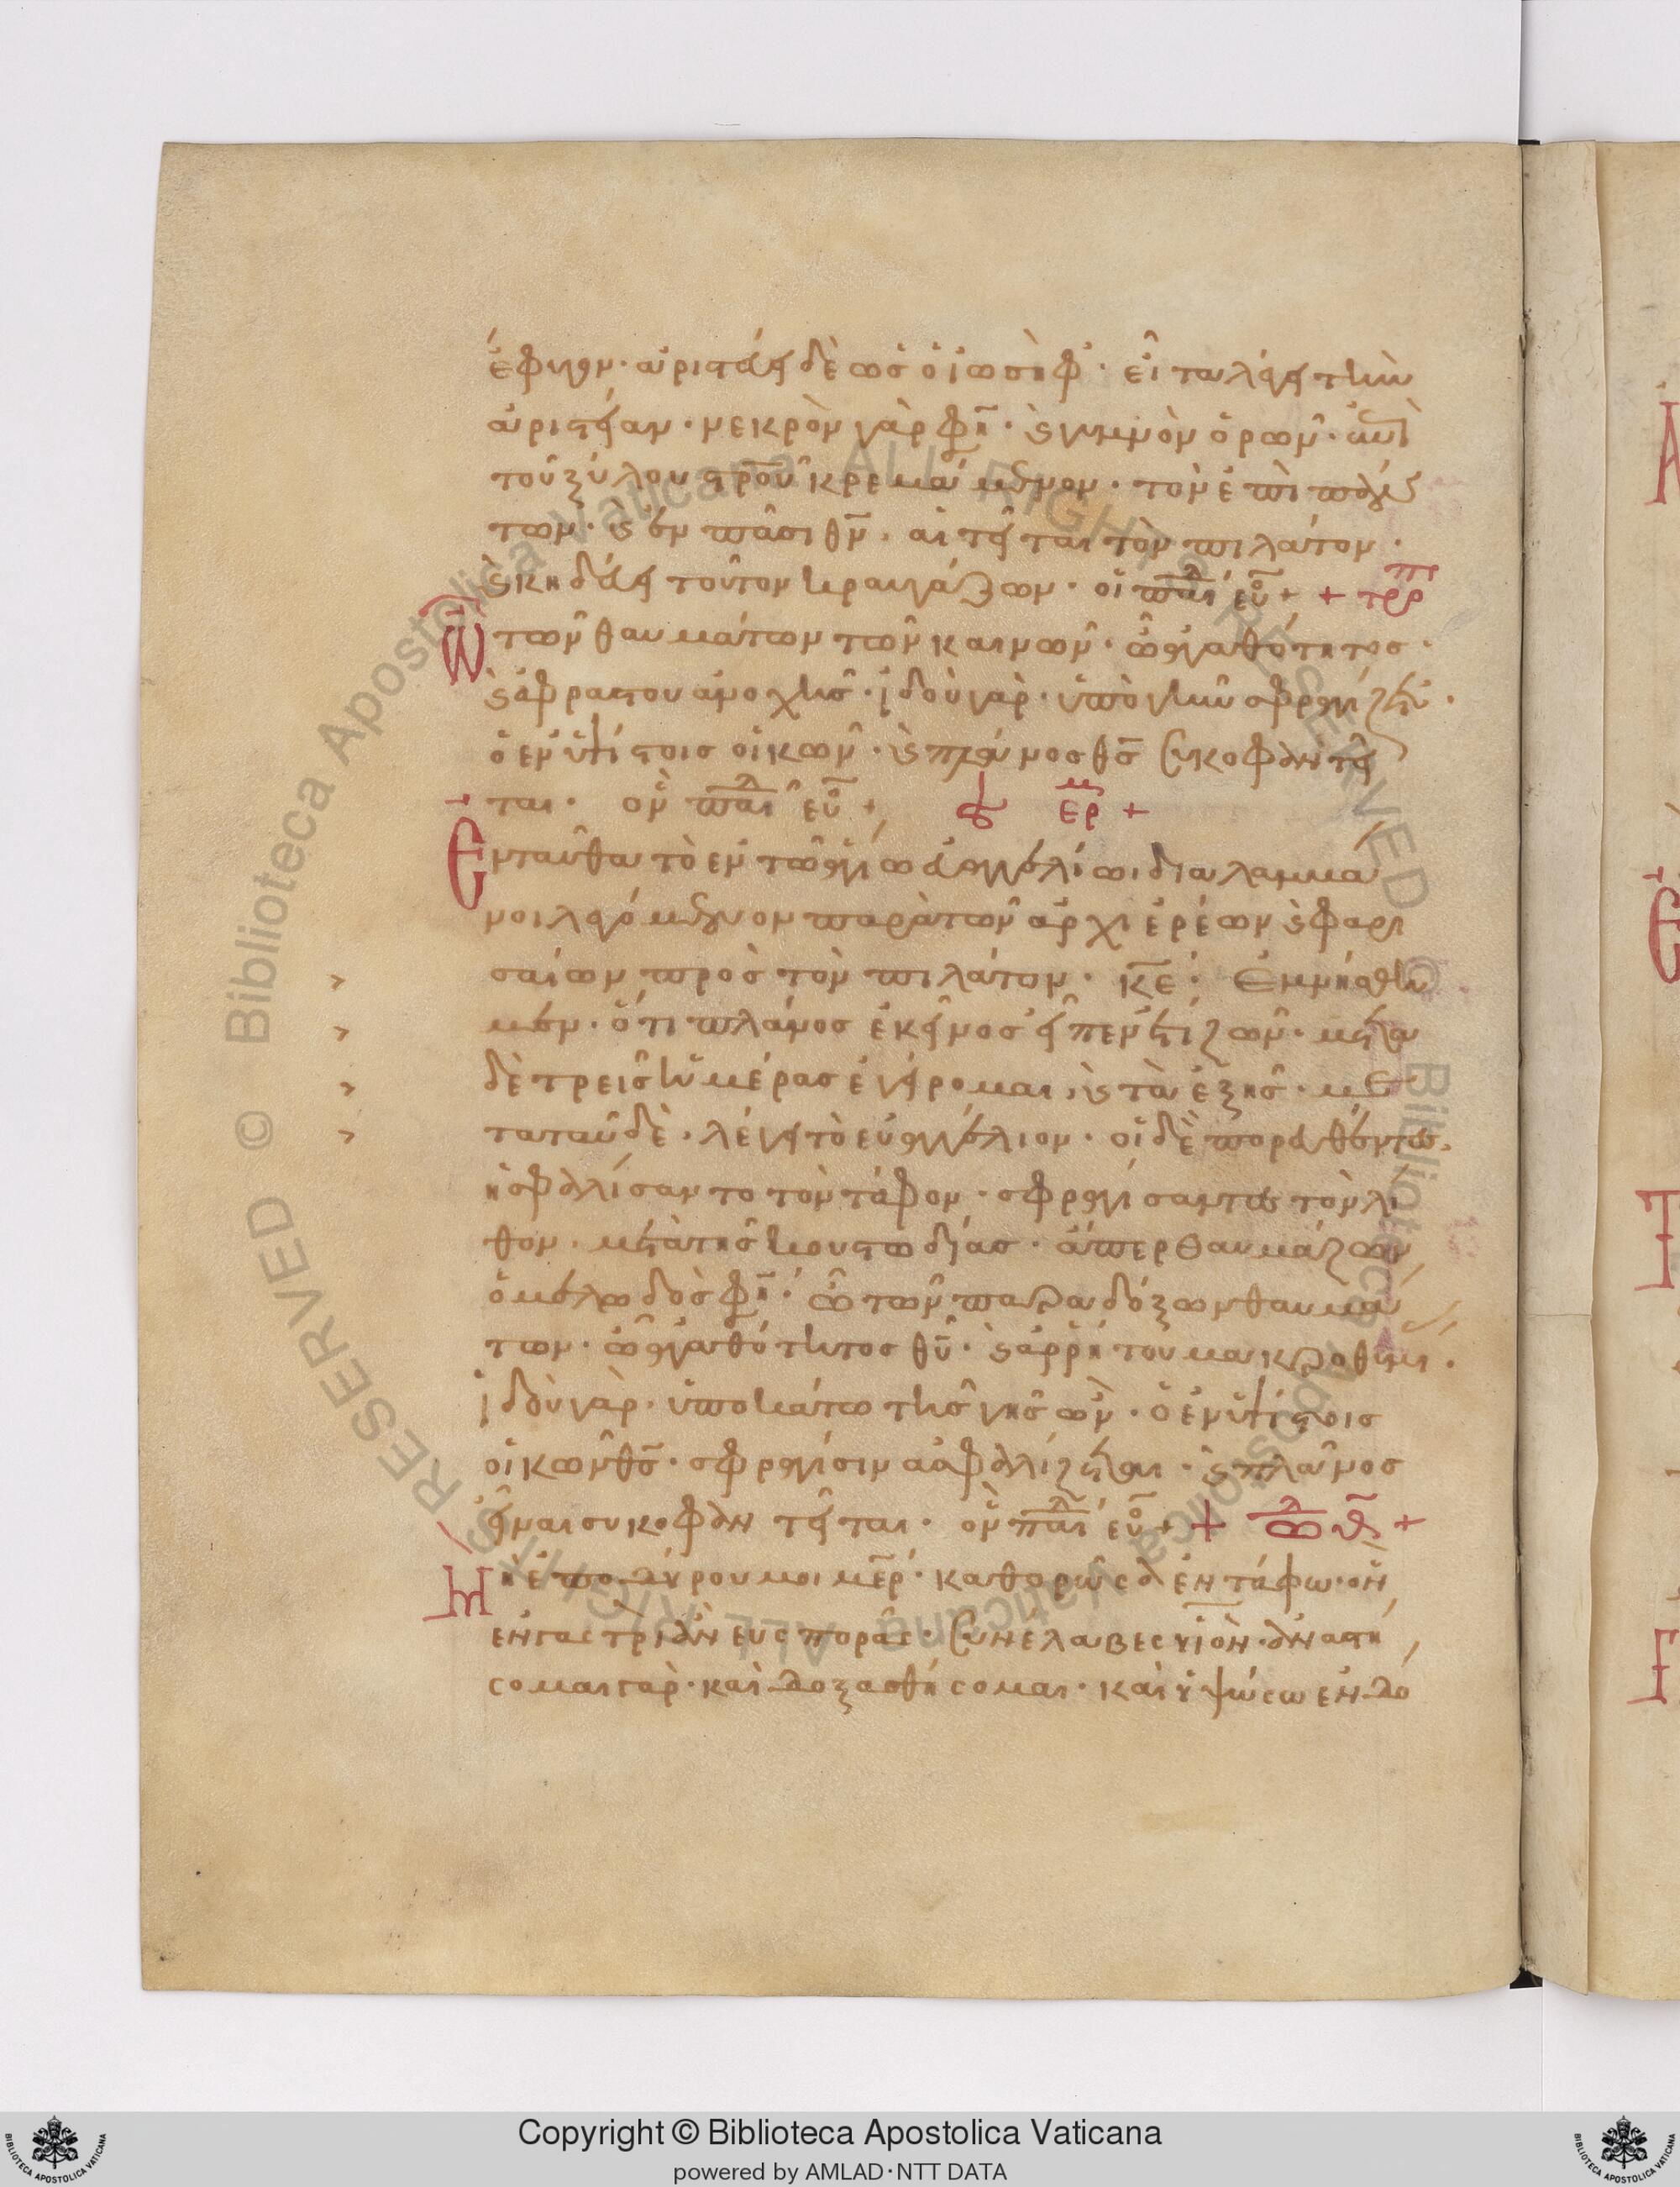 ἔφυγον· ἀριστεύει δὲ ὡς ὁ ἰωσὴφ· εἶτα λέγει τὴν
ἀριστείαν· νεκρὸν γὰρ φη· καὶ γυμνὸν ὁρῶν· ἀντὶ
τοῦ ξύλου στροῦ κρεμάμενον· τὸν ἐπὶ πάν
των· καὶ ἐν πᾶσι θν· αἰτεῖται τὸν πιλάτον·
καὶ κηδεύει τοῦτον κραυγάζων· οἱ παῖ εὐ + + τρρ
Ὢ τῶν θαυμάτων τῶν καινῶν· ὢ ἀγαθότητος·
καὶ ἀφράστου ἀνοχῆς· ἰδοὺ γὰρ· ὑπὸ γῆν σφραγίζεται·
ὁ ἐν ὑψίστοις οἰκῶν· καὶ πλάνος θς συκοφαντεῖ
ται· ὃν παῖ εὐ + ἑρ +
Ἐνταῦθα τὸ ἐν τῷ ἁγίω εὐαγγελίωι διαλαμβα
νοιλεγόμενον παρὰ τῶν ἀρχιερέων καὶ φαρι
σαίων πρὸς τὸν πιλάτον· κε· Ἐμνήσθη
μεν· ὅτι πλάνος ἐκεῖνος εἶπεν ἔτι ζῶν· μετὰ
δὲ τρεῖς ἡμέρας ἐγείρομαι, καὶ τὰ ἑξῆς· με
τα ταῦ δὲ· λέγει τὸ εὐαγγέλιον· οἱ δὲ πορευθέντες
ἠσφαλίσαντο τὸν τάφον· σφραγίσαντες τὸν λι
θον· μετὰ τῆς κουστωδίας· ἅπερ θαυμάζων
ὁ μελωδὸς φη· ὢ τῶν παραδόξων θαυμά
των· ὢ ἀγαθότητος θυ· καὶ ἀρρήτου μακροθυμι·
ἰδοὺ γὰρ· ὑποκάτω τῆς γῆς ὢν· ὁ ἐν ὑψίστοις
οἰκῶν θς· σφραγίσιν ἀσφαλίζεται· καὶ πλάνος
εἶναι συκοφαντεῖται· ὃν παῖ εὐ + + ᾠδ θ +
Μὴ ἐποδύρου μοι μερ· καθορῶσα ἐν τάφω· ὃν
ἐν γαστρὶ ἄνευ σπορᾶς· συνέλαβες υἱὸν· ἀναστή
σομαι γὰρ· καὶ δοξασθήσομαι· καὶ ὑψώσω ἐν δό
Copyright © Biblioteca Apostolica Vaticana
powered by AMLAD·NTT DATA